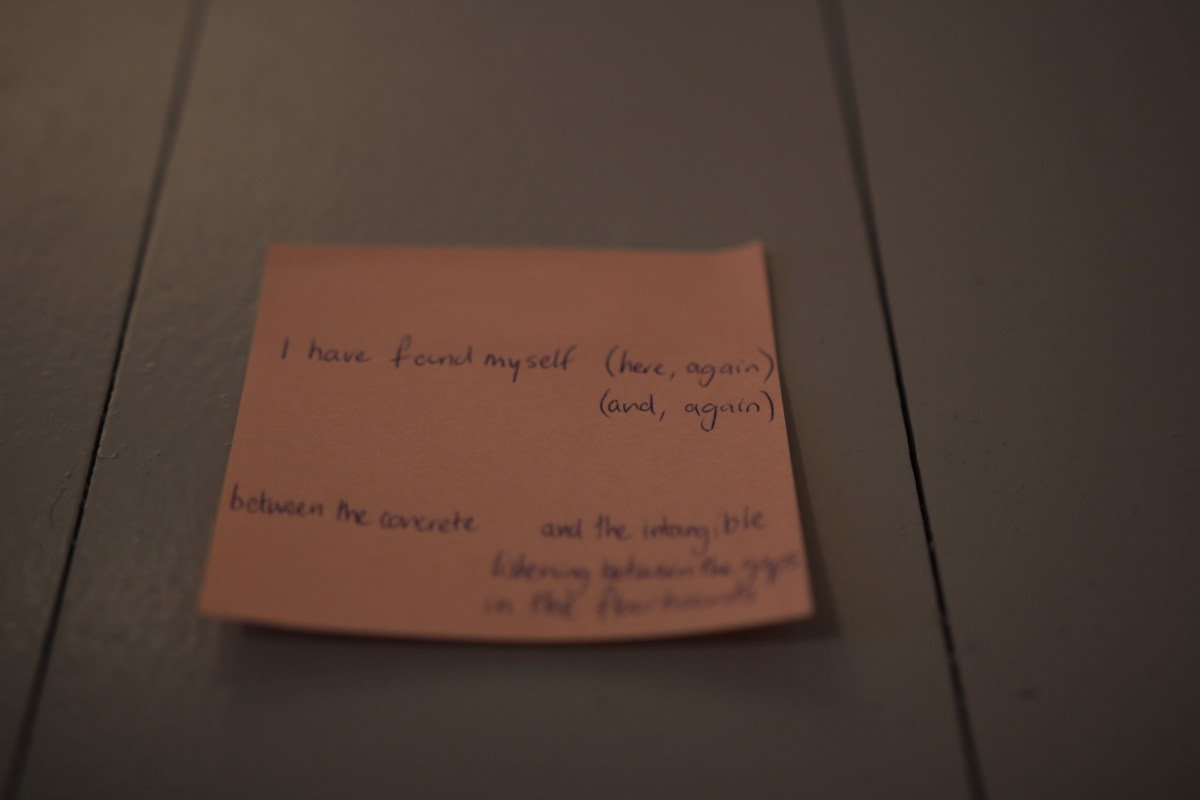 I have found myself (here, again)
(and, again)
between the concrete and the intangible
listening between the gaps
in the floorboards